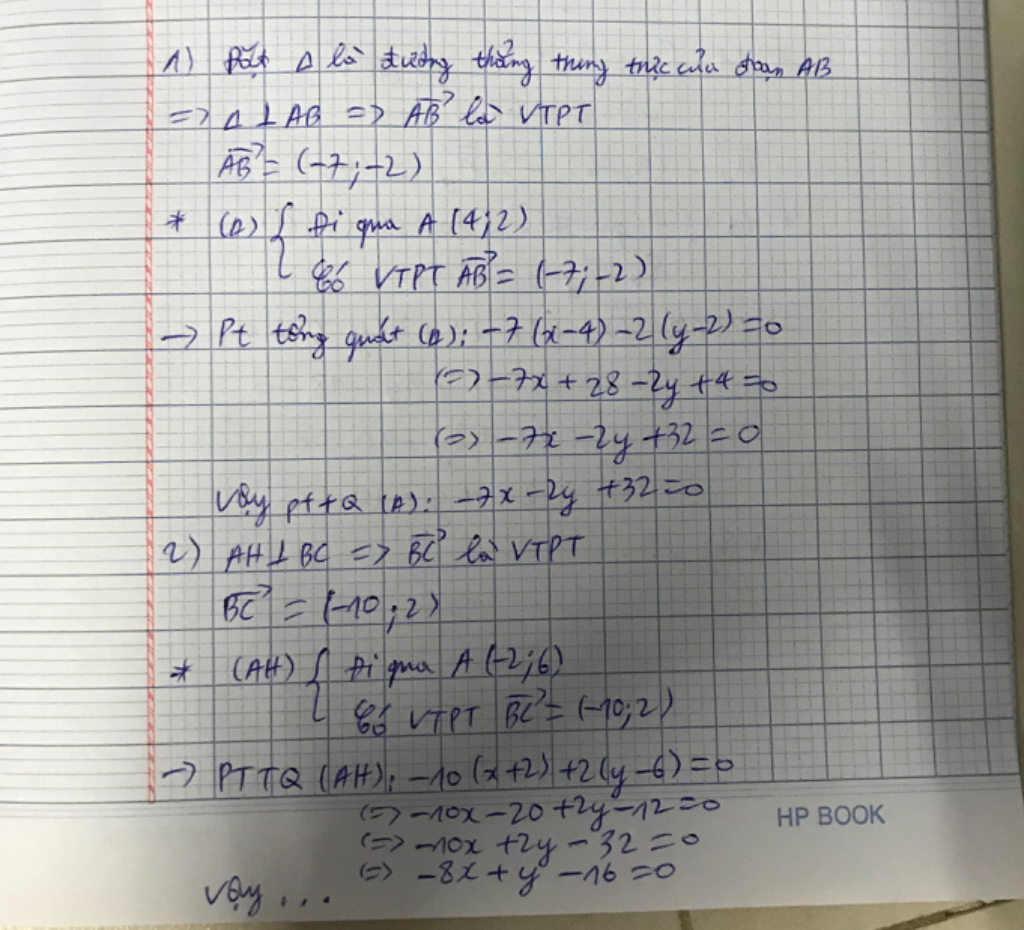 1) Đặt Δ là đường thẳng trung trực của đoạn AB
=> Δ ⊥ AB => AB→ là VTPT
AB→ = (-7; -2)
* (Δ) { Đi qua A (4; 2)
Có VTPT AB→ = (-7; -2)
-> Pt tổng quát (Δ): -7(x-4) -2(y-2) =0
(=> -7x + 28 -2y +4 =0
(=> -7x -2y +32 = 0
Vậy pttQ (Δ): -7x -2y +32 =0
2) AH ⊥ BC => BC→ là VTPT
BC→ = (-10; 2)
* (AH) { Đi qua A (-2; 6)
Có VTPT BC→ = (-10; 2)
-> PTTQ (AH): -10(x+2) +2(y-6) =0
(=> -10x -20 +2y -12 =0
(=> -10x +2y - 32 =0
(=> -8x + y -16 =0
Vậy ...
HP BOOK